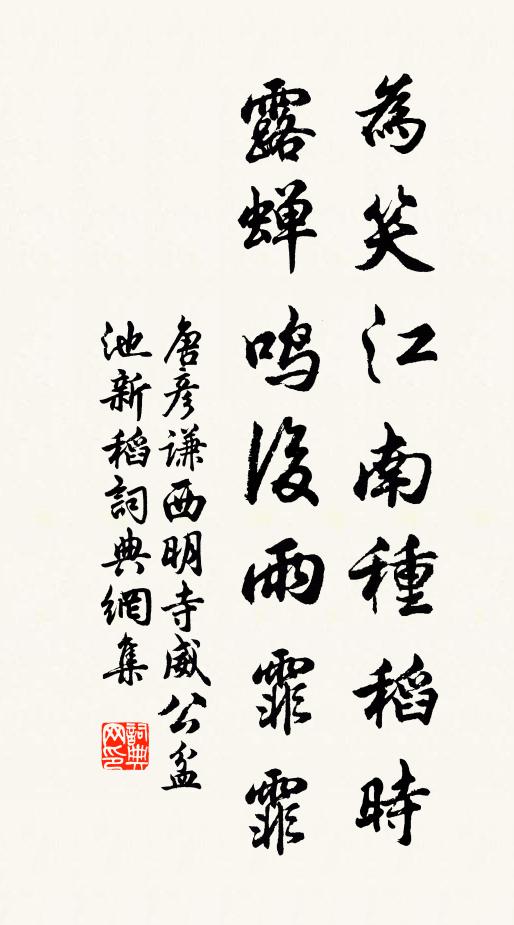 為笑江南種稻時
露蟬鳴後雨霏霏
唐彥謙西明寺威公盆
池新稻詞典網集
詞典
网印